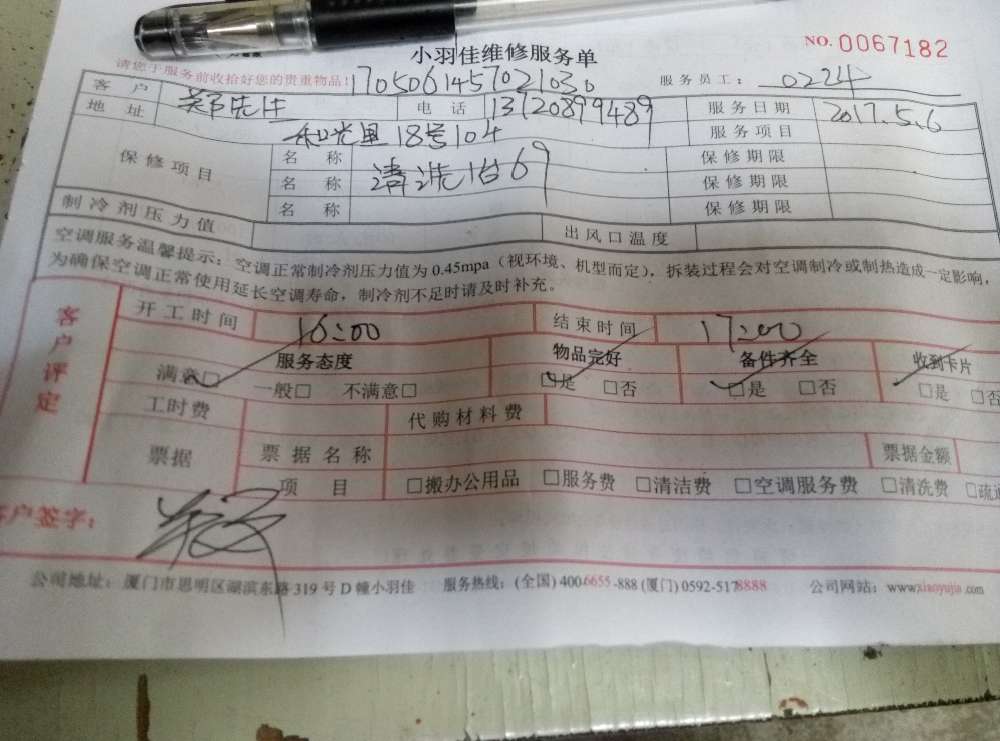 小羽佳维修服务单
NO. 0067182
请您于服务前收拾好您的贵重物品! 170506145702103 服务员工: 0224
客户 郑先生 电话 13720899489 服务日期 2017.5.6
地址 和光里18号104 服务项目
保修项目 名称 清洗 69 保修期限
名称 保修期限
名称 保修期限
制冷剂压力值 出风口温度
空调服务温馨提示:空调正常制冷剂压力值为0.45mpa(视环境、机型而定),拆装过程会对空调制冷或制热造成一定影响,
为确保空调正常使用延长空调寿命,制冷剂不足时请及时补充。
客户评定
开工时间 16:00 结束时间 17:00
服务态度 物品完好 备件齐全 收到卡片
满意□ 一般□ 不满意□ □是 □否 □是 □否 □是 □否
工时费 代购材料费
票据 票据名称 票据金额
项目 □搬办公用品 □服务费 □清洁费 □空调服务费 □清洗费 □疏通
客户签字:
公司地址:厦门市思明区湖滨东路319号D幢小羽佳 服务热线:(全国)4006655-888(厦门)0592-5178888 公司网站:www.xiaoyujia.com